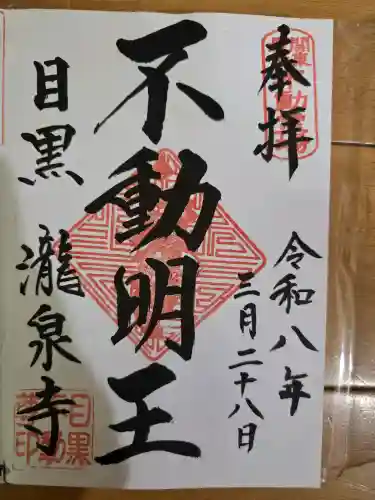 奉拝
令和八年
三月二十八日
不動明王
目黒
瀧泉寺